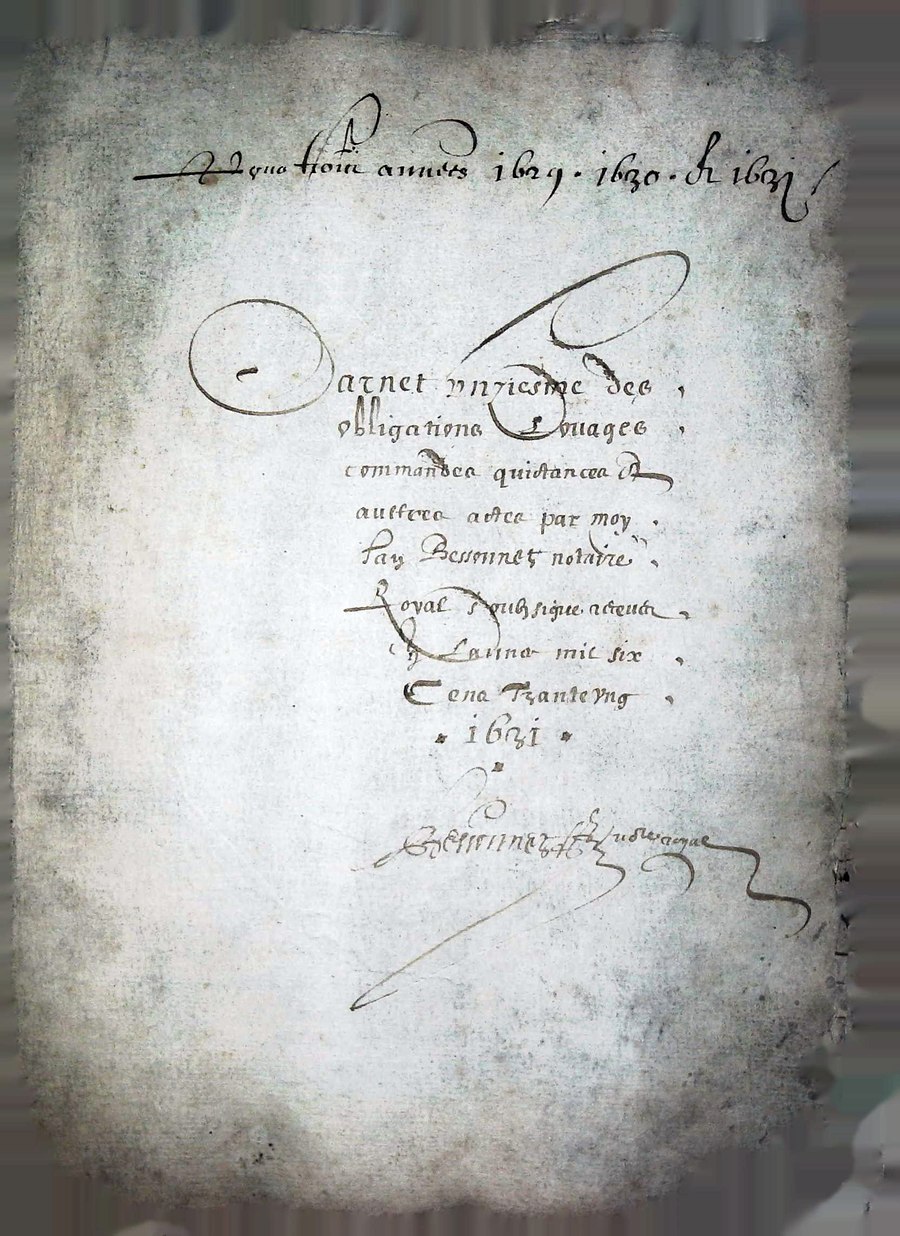 pour trois années 1629. 1630. et 1631
Carnet vnziesme des
obligations Louages
commandes quictances et
aultres actes par moy
Bessonnet notaire
Royal soubsigné receuz
En Lanne mil six
Cens Trante vng
1631
Bessonnet no.re royal